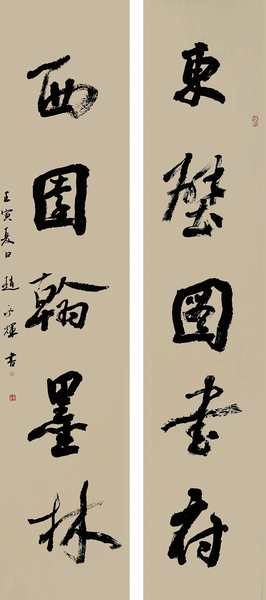 東壁圖書府
西園翰墨林
壬寅夏日趙永輝書